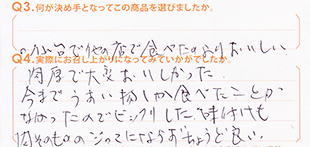 Q3.何が決め手となってこの商品を選びましたか。
小台で他の店で食べたのよりおいしい
Q4.実際にお召し上がりになってみていかがでしたか。
肉厚で大変おいしかった
今までうすい物しか食べたことが
なかったのでビックリした。味付けも
肉そのもの
良い。